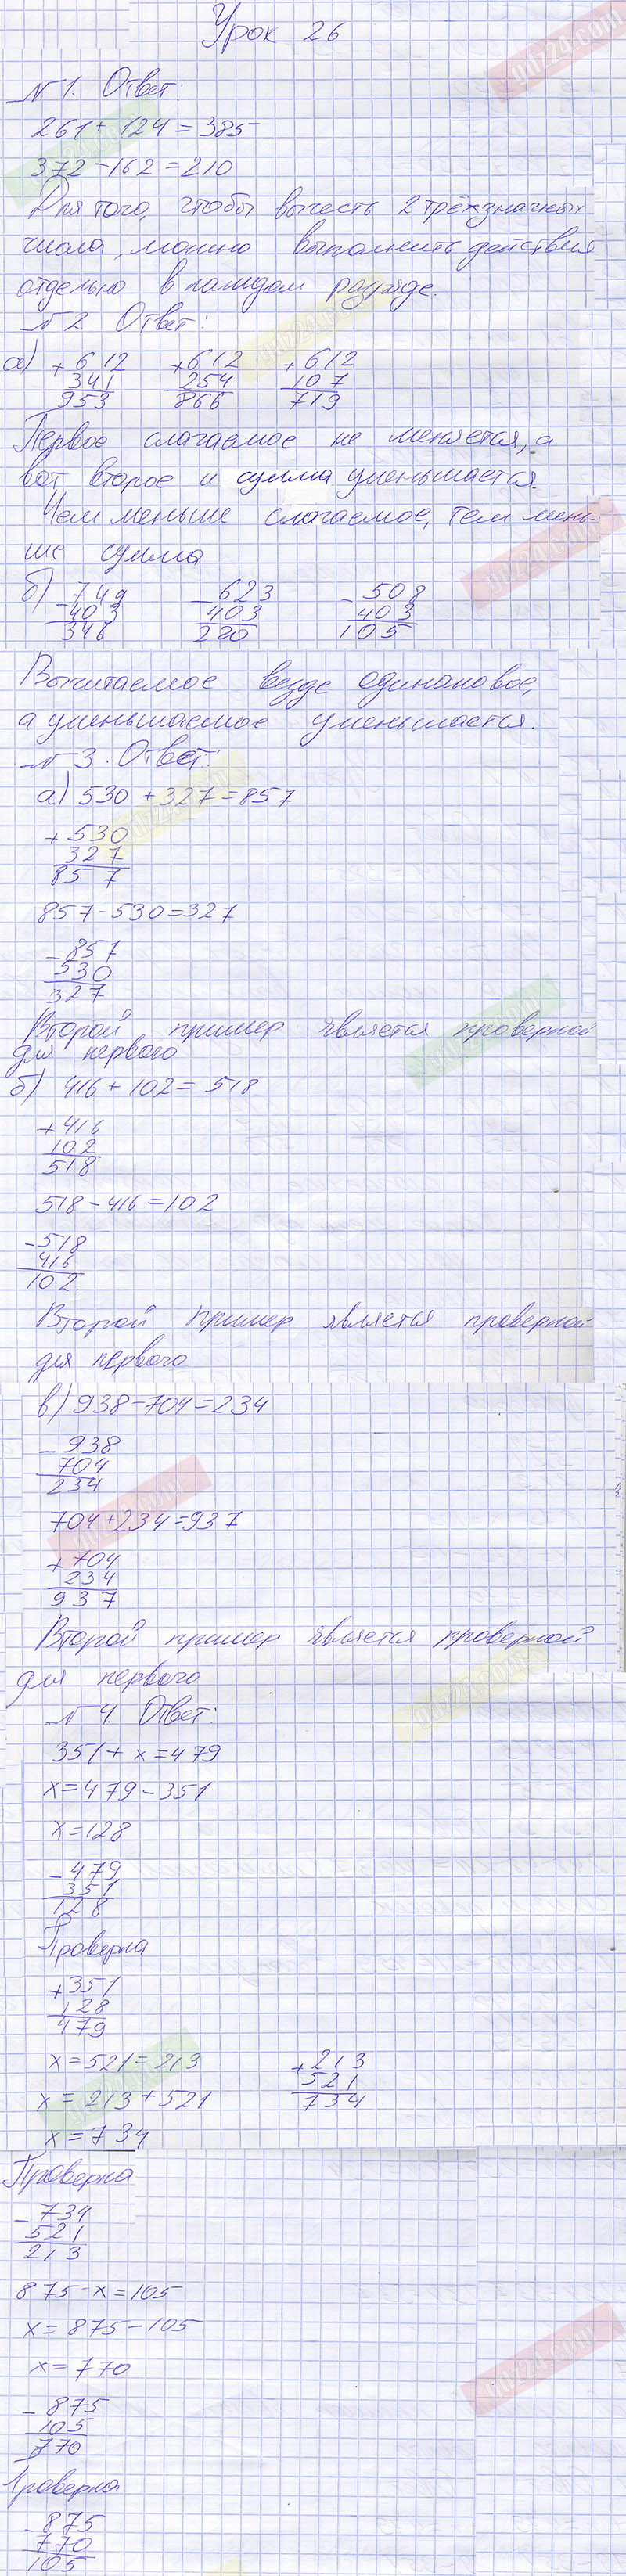 Урок 26
№1. Ответ:
261+124=385
372-162=210
Для того, чтобы вычесть 2 трёхзначных
числа, можно выполнить действия
отдельно в каждом разряде.
№2 Ответ:
а) +612 +612 +612
341 254 107
953 866 719
Первое слагаемое не меняется, а
вот второе и сумма уменьшается.
Чем меньше слагаемое, тем мень-
ше сумма
б) -749 -623 -508
403 403 403
346 220 105
Вычитаемое везде одинаковое,
а уменьшаемое уменьшается.
№3. Ответ:
а) 530+327=857
+530
327
857
857-530=327
-857
530
327
Второй пример является проверкой
для первого
б) 416+102=518
+416
102
518
518-416=102
-518
416
102
Второй пример является проверкой
для первого
в) 938-704=234
-938
704
234
704+234=937
+704
234
937
Второй пример является проверкой
для первого
№4. Ответ:
351+x=479
x=479-351
x=128
-479
351
128
Проверка
+351
128
479
x=521=213 +213
x=213+521 521
x=734 734
Проверка
-734
521
213
875-x=105
x=875-105
x=770
-875
105
770
Проверка
-875
770
105